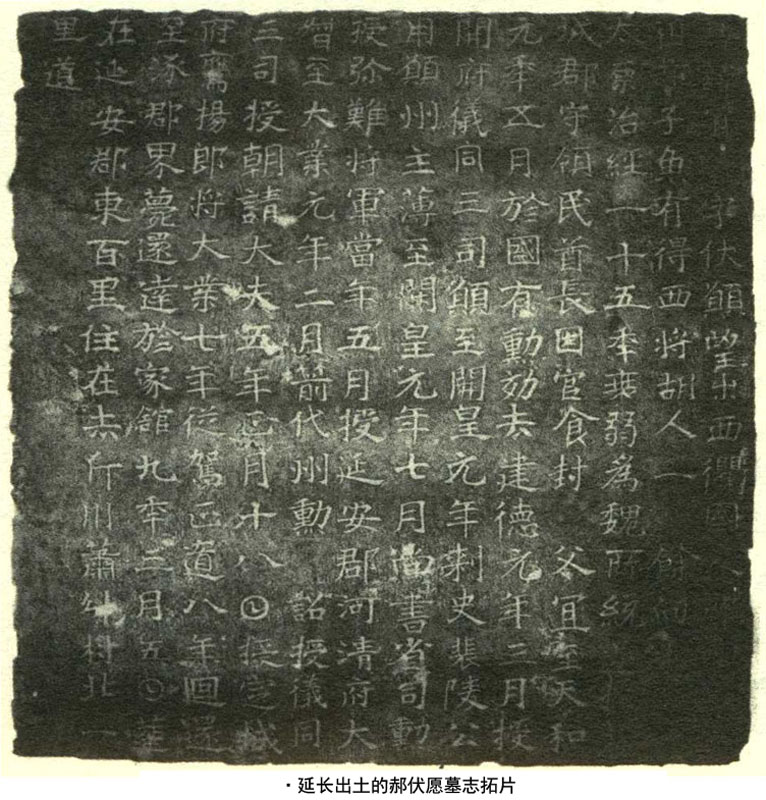 字伏願望出西
子魚有得西將胡人一 餘
大軍治經一十五年衰弱為魏所統
城郡守領民酋長因官食封 父宜至天和
元年五月於國有勳効去建德元年三月授
開府儀同三司願至開皇元年刺史裴陵公
用願州主薄至開皇元年七月尚書省司勳
授殄難將軍當年五月授延安郡河清府大
督至大業元年二月箭代州勳 詔授儀同
三司授朝請大夫五年正月十八日授定城
府鷹揚郎將大業七年從駕正道八年迴還
至涿郡界薨還達於家館九年三月五日葬
在延安郡東百里住在去斤川蕭 村北一
里道
·延长出土的郝伏愿墓志拓片